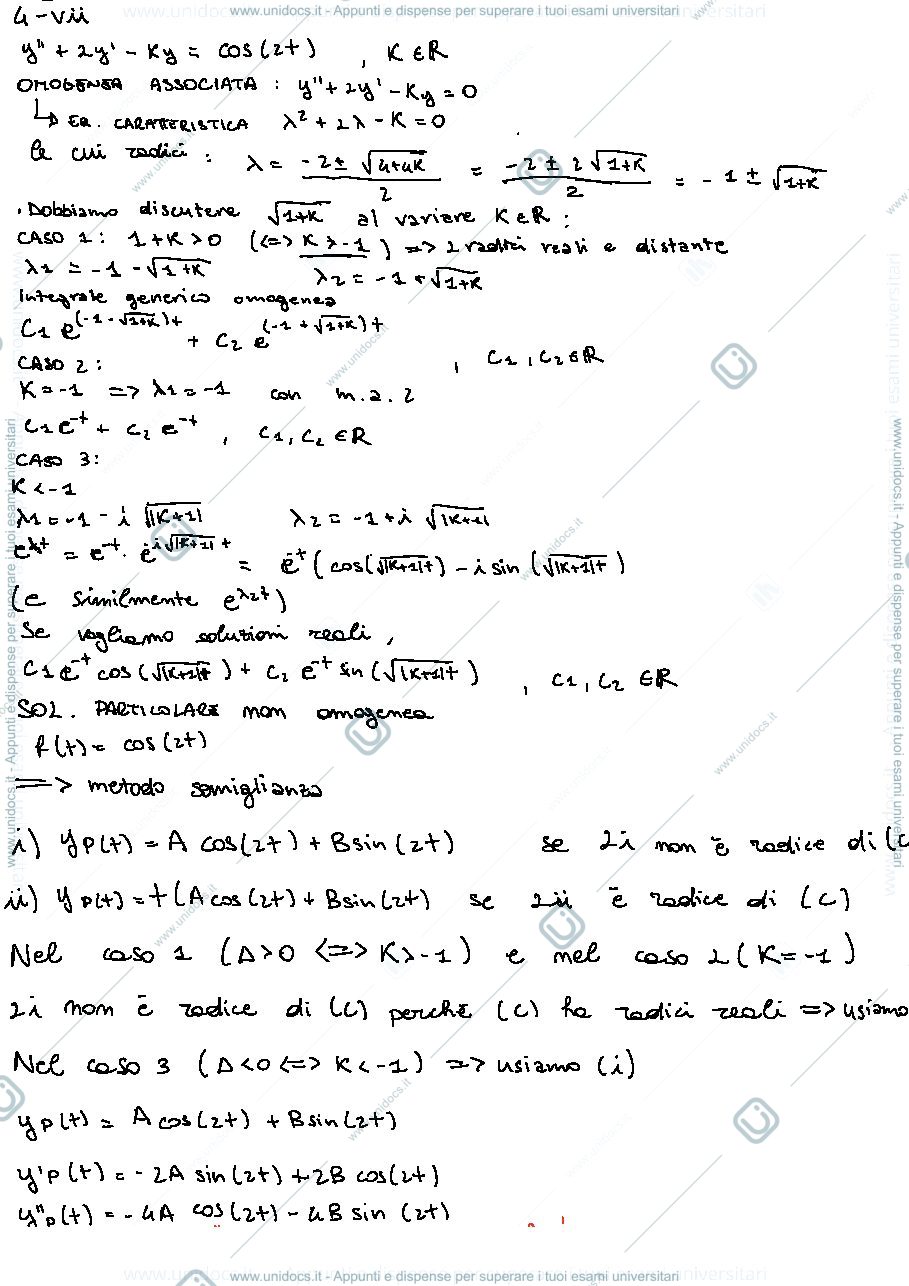 www.unidocs.it - Appunti e dispense per superare i tuoi esami universitari
4-vii
y'' + 2y' - Ky = cos(2t) , K ∈ ℝ
OMOGENEA ASSOCIATA : y'' + 2y' - Ky = 0
↳ EQ. CARATTERISTICA λ² + 2λ - K = 0
le cui radici : λ = (-2 ± √(4+4K))/2 = (-2 ± 2√(1+K))/2 = -1 ± √(1+K)
. Dobbiamo discutere √(1+K) al variare K ∈ ℝ :
CASO 1 : 1+K > 0 (<=> K > -1) => 2 radici reali e distante
λ1 = -1 - √(1+K) λ2 = -1 + √(1+K)
Integrale generico omogenea
C1 e^((-1-√(1+K))t) + C2 e^((-1+√(1+K))t) , C1, C2 ∈ ℝ
CASO 2 :
K = -1 => λ1 = -1 con m.a. 2
C1 e^(-t) + C2 e^(-t) , C1, C2 ∈ ℝ
CASO 3:
K < -1
λ1 = -1 - i √|K+1| λ2 = -1 + i √|K+1|
e^(λ1t) = e^(-t) · e^(-i√|K+1| t) = e^(-t) ( cos(√|K+1| t) - i sin (√|K+1| t )
(e similmente e^(λ2t))
Se vogliamo soluzioni reali,
C1 e^(-t) cos (√|K+1| t) + C2 e^(-t) sin (√|K+1| t) , C1, C2 ∈ ℝ
SOL. PARTICOLARE non omogenea
f(t) = cos(2t)
=> metodo somiglianza
i) yp(t) = A cos(2t) + B sin(2t) se 2i non è radice di (C
ii) yp(t) = t(A cos(2t) + B sin(2t) se 2ii è radice di (C)
Nel caso 1 (Δ>0 <=> K>-1) e nel caso 2 (K = -1)
2i non è radice di (C) perché (C) ha radici reali => usiamo
Nel caso 3 (Δ<0 <=> K<-1) => usiamo (i)
yp(t) = A cos(2t) + B sin(2t)
y'p(t) = - 2A sin(2t) + 2B cos(2t)
y''p(t) = - 4A cos(2t) - 4B sin (2t)
www.unidocs.it - Appunti e dispense per superare i tuoi esami universitari